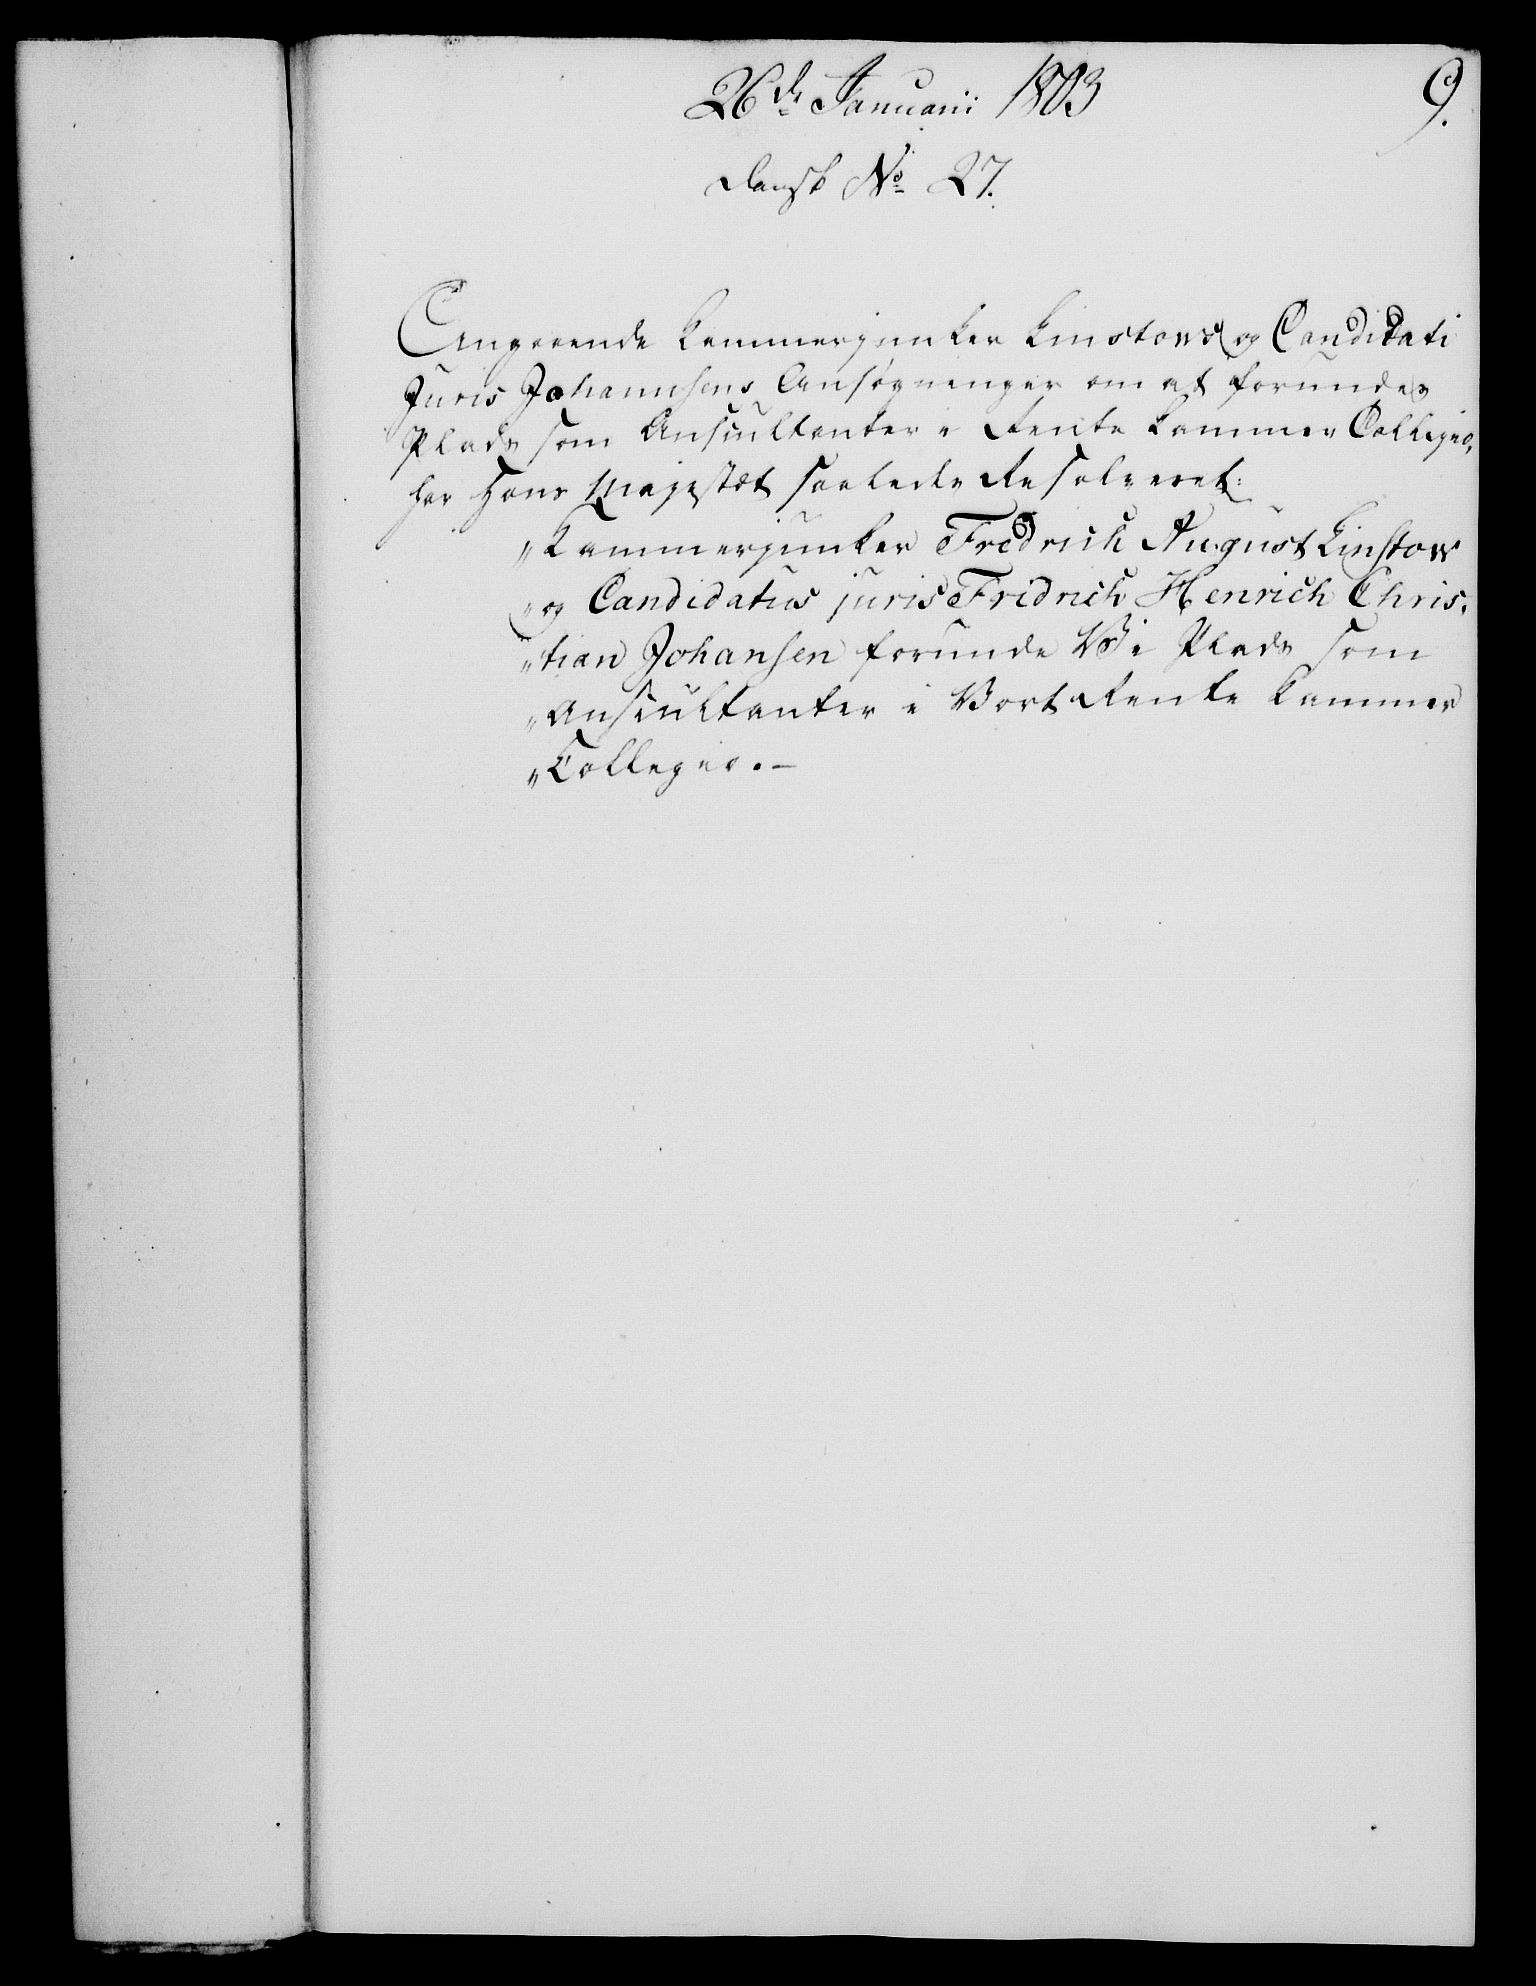 26de Januarii 1803
9.
Dansk No 27.
Angaaende Kammerjunker Linstows og Candidati
Juris Johannsens Ansøgninger om at forundes
Plads som Auscultanter i Rente Kammer Collegio,
har Hans Majestæt saaledes Resolveret:
"Kammerjunker Fredrich August Linstow
"og Candidatus juris Fridrich Henrich Chris,
"tian Johansen forunde Vi Plads som
"Auscultanter i Vort Rente Kammer
"Collegio.-